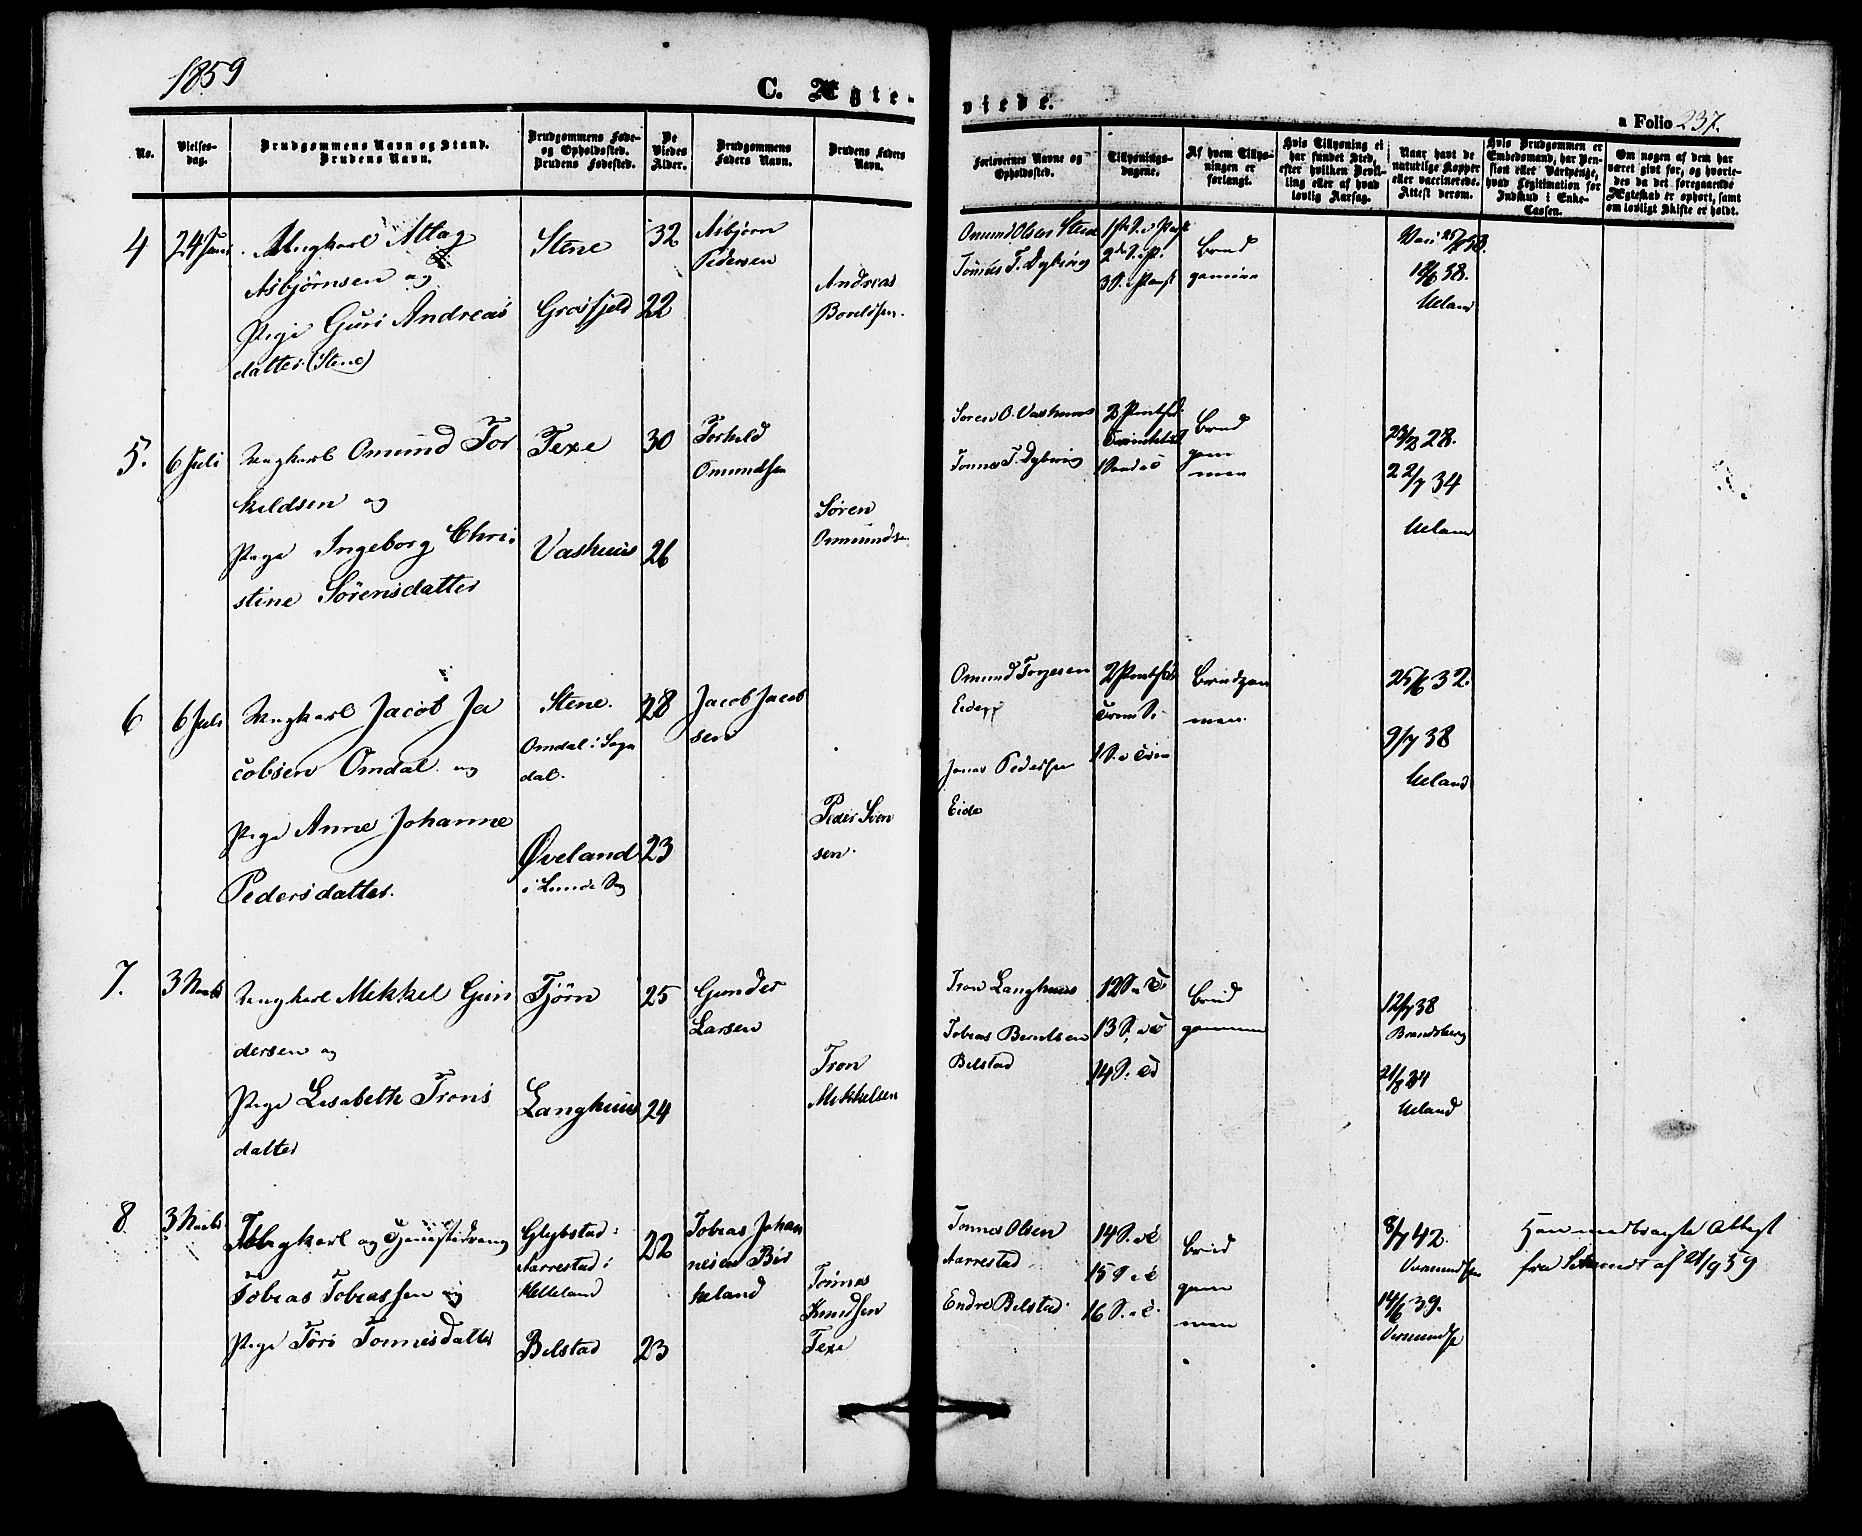 1859
C. Ægte-
viede.
a Folio 237.
No.
Vielses-
dag.
Brudgommens Navn og Stand.
Brudens Navn.
Brudgommens Føde-
og Opholdssted.
Brudens Fødested.
De
Viedes
Alder.
Brudgommens
Faders Navn.
Brudens Faders
Navn.
Forlovernes Navne og
Opholdssted.
Tillysnings-
dagene.
Af hvem Tillys-
ningen er
forlangt.
Hvis Tillysning ei
har fundet Sted,
efter hvilken Bevil-
ling eller af hvad
lovlig Aarsag.
Naar havt de
naturlige Kopper
eller vaccinerede.
Attest derom.
Hvis Brudgommen er
Embedsmand, har Pen-
sion eller Vartpenge,
hvad Legitimation for
Indskud i Enke-
Cassen.
Om nogen af dem har
været givt før, og hvorle-
des da det foregaaende
Ægteskab er ophørt, samt
om lovligt Skifte er holdt.
4
24 Juni
Ungkarl Attag
Asbjørnsen og
Pige Guri Andreas
datter (Stene)
Stene
Grosfjeld
32
22
Asbjørn
Pedersen
Andreas
Boreldsen.
Omund Olsen Stene
Tønnes T. Dybing
1ste S. i Pasf
2den S. i P.
3 S. i Pasf
Brud
gommen
18/6 38.
Ueland
5.
6 Juli
Ungkarl Omund Tor
kildsen og
Pige Ingeborg Chri
stine Sørensdatter
Texe
Vashuus
30
26
Torkild
Omundsen
Søren
Ommundsen
Søren O. Vashuus
Tonnes T. Dybing
2 Pintsed.
Brud
gom
men
23/2 28.
22/7 34
Ueland
6
6 Juli
Ungkarl Jacob Ja
cobsen Omdal og
Pige Anne Johanne
Pedersdatter.
Stene.
Omdal i Sogn
dal.
Øveland
i Lunde Sog
28
23
Jacob Jacob
sen
Peder Sven
sen.
Omund Torjesen
Eide
Jonas Pedersen
Eide
2 Pintsed
Trin S.
1 S. e Trin
Brudgom
men.
25/6 32.
9/7 38
Ueland
7.
3 Novbr
Ungkarl Mikkel Gun
dersen og
Pige Lisabeth Trons
datter
Tjørn
Langhuus
25
24
Gunder
Larsen
Tron
Mikkelsen
Tron Langhuus
Tobias Berntsen
Belstad
12 S. e T
13 S. e T
14 S. e T
Brud
gommen
12/7 38
Brandsberg
21/8 34
Ueland
8
3 Novbr
Ungkarl og Tjenestedreng
Tobias Tobiassen og
Pige Tøri Tonnesdatter
Glybstad i
Aarrestad i
Helleland
Belstad
22
23
Tobias Johan
nesen Bir
keland
Tönnes
Knudsen
Texe
Tonnes Olsen
Aarrestad
Endre Belstad.
14 S. e T
15 S e T
16 S. e T.
Brud
gom
men
8/7 42.
14/6 39.
Han medbragte Attest
fra af 21/9 59